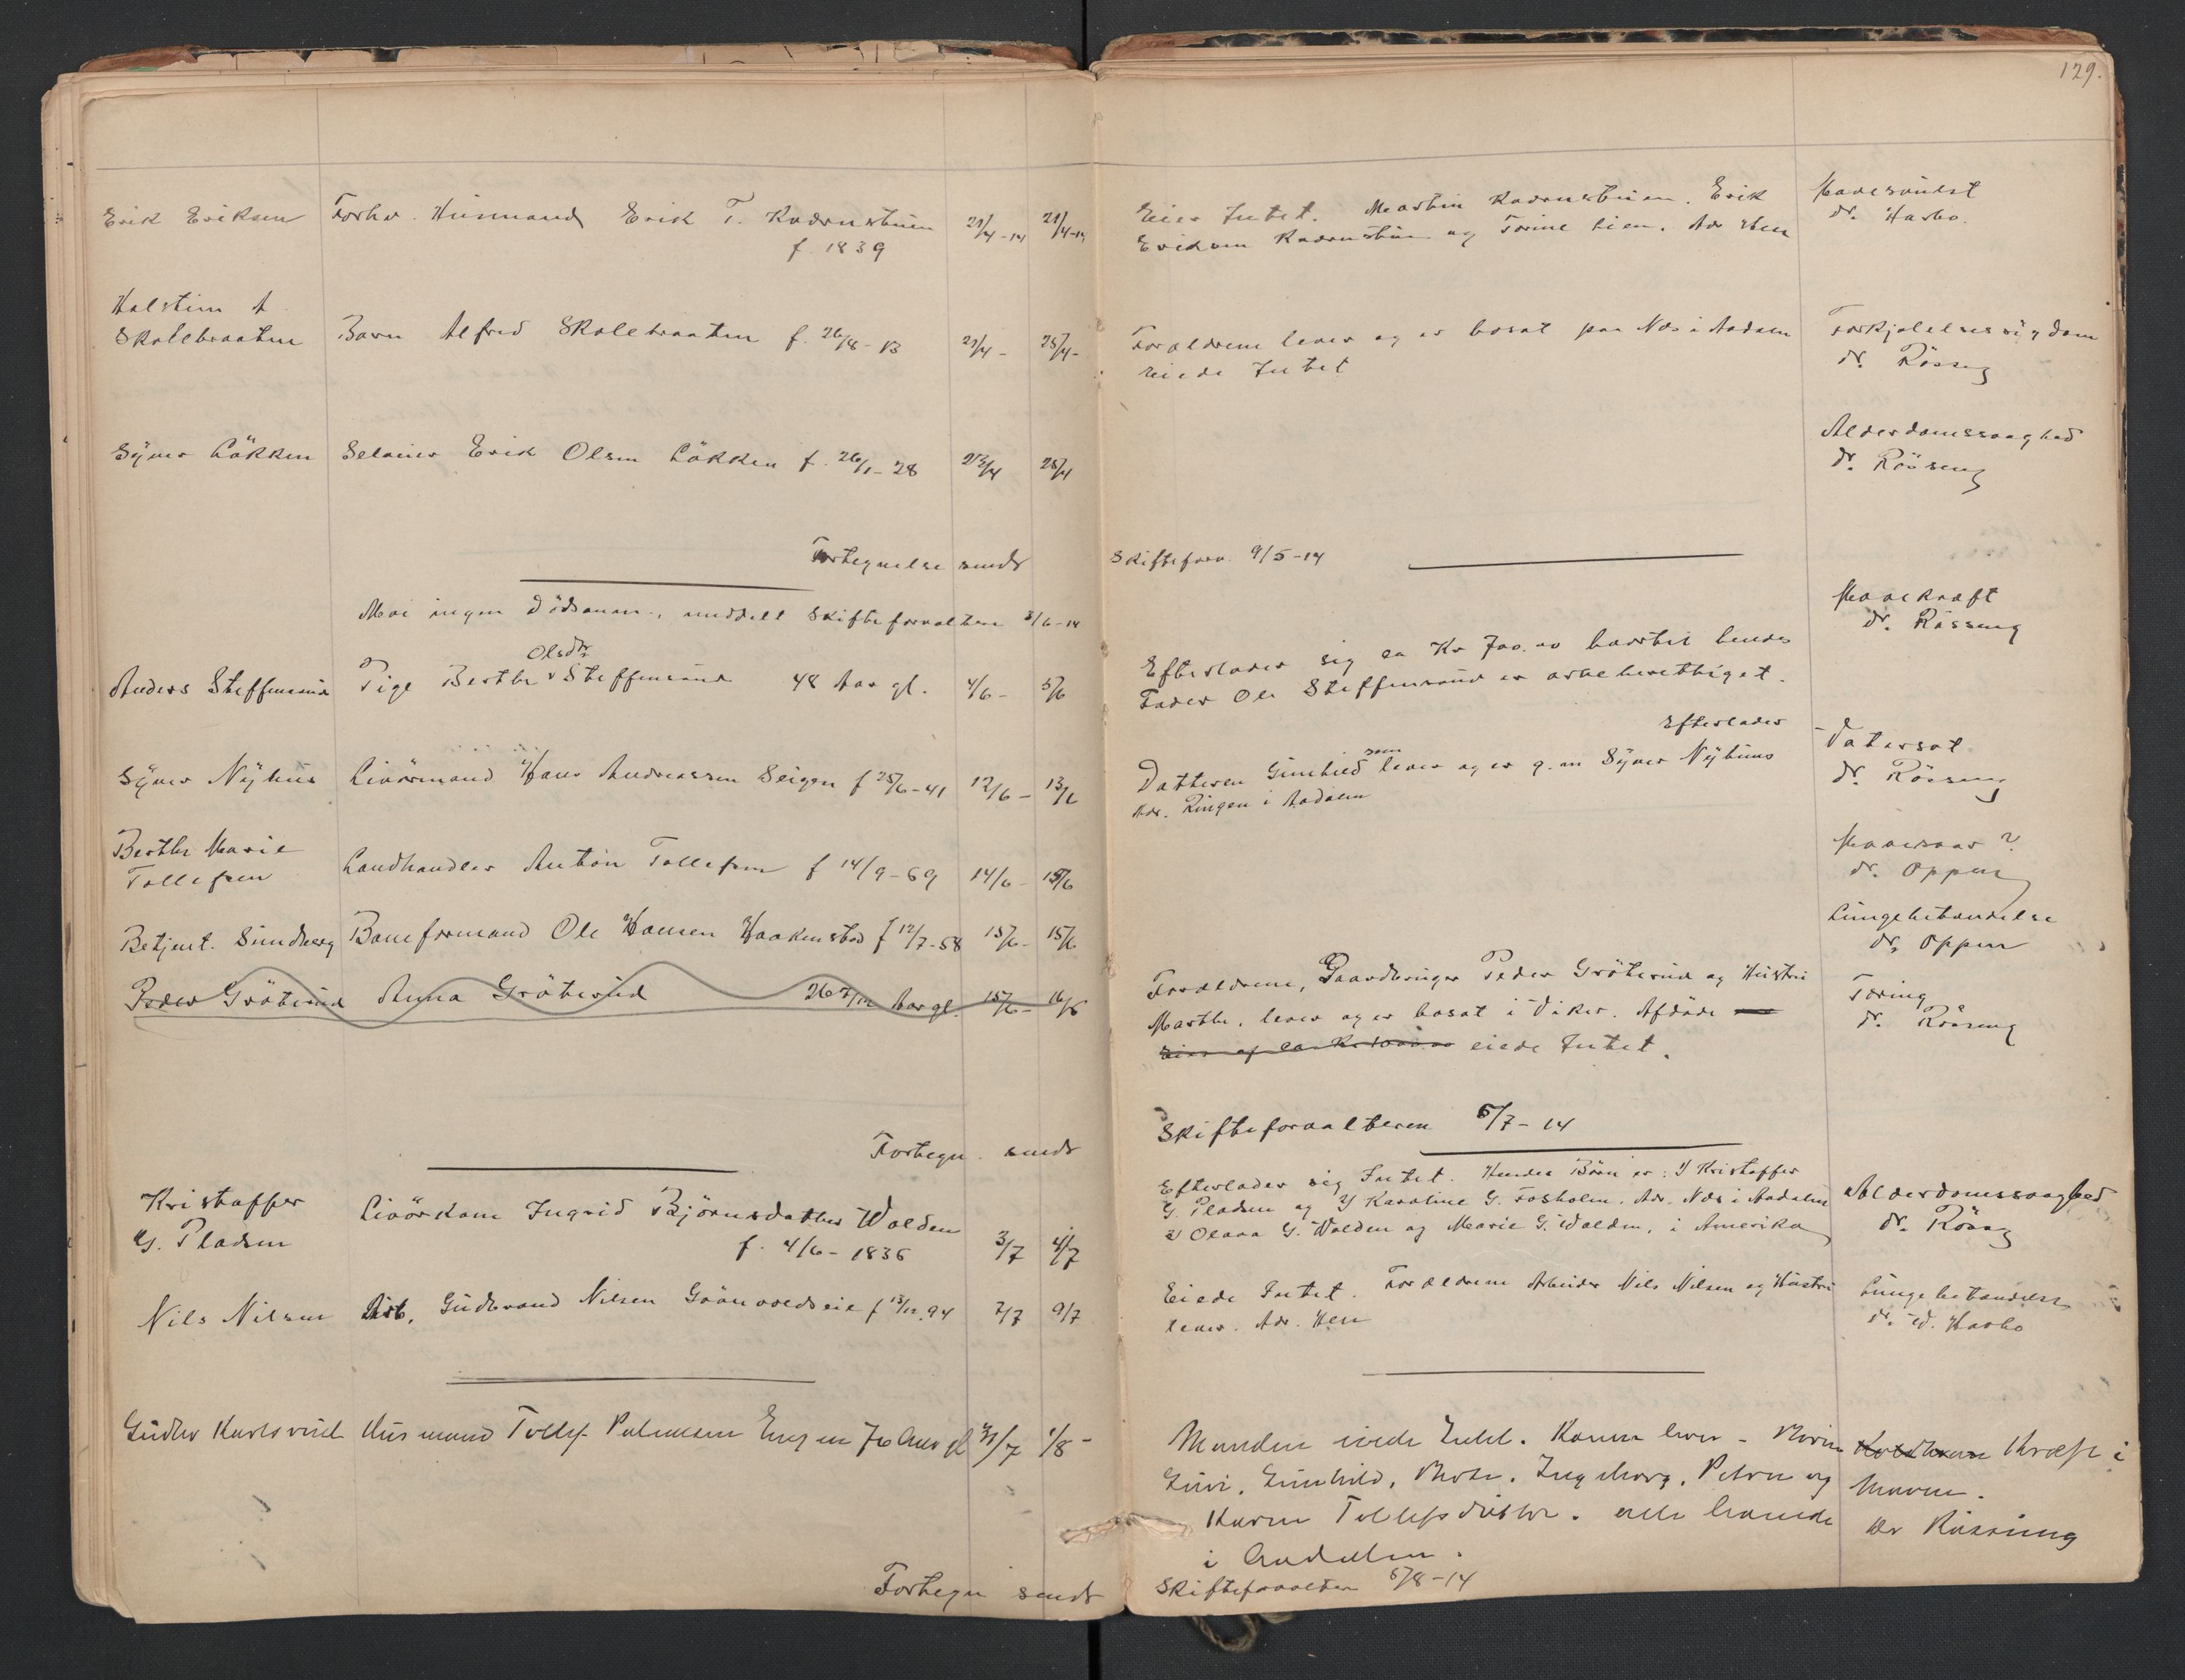 129.
Erik Eriksen Forhv. Husmand Erik T. Kvernstuen 21/4-14 21/4-14
f. 1839
Eier Intet. Martin Kvernstuen, Erik
Eriksen Kvernstuen og Torine Lien. Adr Hen
Mavesvulst
dr. Harbo.
Halstein A
Skolebraaten Barn Alfred Skolebraaten f. 26/8-13 21/4- 25/4-
Forældrene lever og er bosat paa Nes i Aadalen
eiede Intet
Forkjølelsessygdom
dr. Røssung
Syver Løkken Selveier Erik Olsen Løkken f. 26/1-28 23/4 25/4
Alderdomssvaghed
dr. Røssung
Fortegnelse sendt Skifteforv. 9/5-14
Mai ingen Dødsanm., meddelt Skifteforvalteren 3/6-14
Olsdtr
Anders Steffensrud Pige Berthe Steffensrud 48 Aar gl. 4/6- 5/6
Efterlader sig ca Kr 700.00 hvortil hendes
Fader Ole Steffensrud er arveberettiget.
Mavekræft
dr. Røssung
Efterlader
Syver Nyhus Livørmand Hans Andreassen Seigen f 25/6-41 12/6- 13/6
Datteren Gunhild som lever og er g. m Syver Nyhuus
Adr. Ringen i Aadalen
Vatersot
dr. Røssung
Berthe Marie
Tollefsen Landhandler Anton Tollefsen f 14/9-69 14/6- 15/6
Mavesaar ?
dr. Oppen
Betjent. Sundberg Baneformand Ole Hansen Haakenstad f 12/7-58 15/6- 15/6
Lungebetændelse
dr. Oppen
Peder Grøterud Anna Grøterud 26 7/12 Aar gl. 15/6- 16/6
Forældrene, Gaardbruger Peder Grøterud og Hustru
Marthe, lever og er bosat i Viker. Afdøde
eiede Intet.
Tæring
dr. Røssung
Fortegn. sendt Skifteforvalteren 5/7-14
Kristoffer
G. Pladsen Livørkone Ingrid Bjørnsdatter Wolden
f. 4/6-1836 3/7 4/7
Efterlader sig Intet. Hendes Børn er: 1/ Kristoffer
G. Pladsen og 2/ Karoline G. Fosholm. Adr. Nes i Aadalen
3/ Olava G. Wolden og Marie G. Wolden, i Amerika
Alderdomssvaghed
dr. Røssung
Nils Nilsen Arb. Gudbrand Nilsen Grønvoldseie f 13/12.94 7/7 9/7
Eiede Intet. Forældrene Arbeider Nils Nilsen og Hustru
lever. Adr. Hen
Lungebetændelse
dr. W. Harbo
Gudbr Karlsrud Husmand Tollef Palmesen Engen 70 Aar gl 31/7 1/8-
Manden eiede Intet. Konen lever - Børn
Guri, Gunhild, Berte, Ingeborg, Petrea og
Karen Tollefsdøttre. alle boende
i Aadalen.
Kræft i
Maven.
Dr Røssung
Fortegn sendt Skifteforvalter 5/8-14